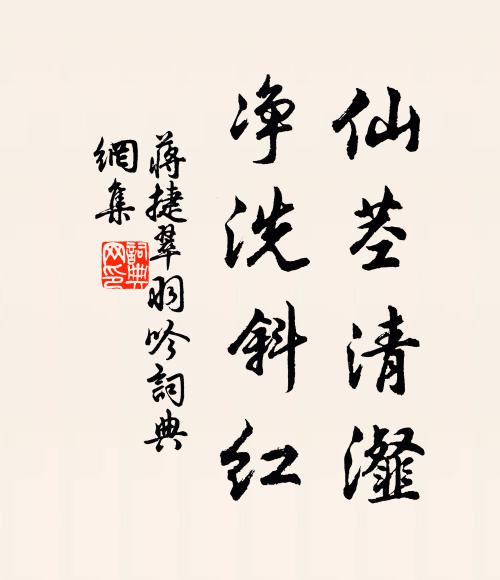 仙茎清瀣
净洗斜红
蒋捷翠羽吟詞典
網集
詞典网印